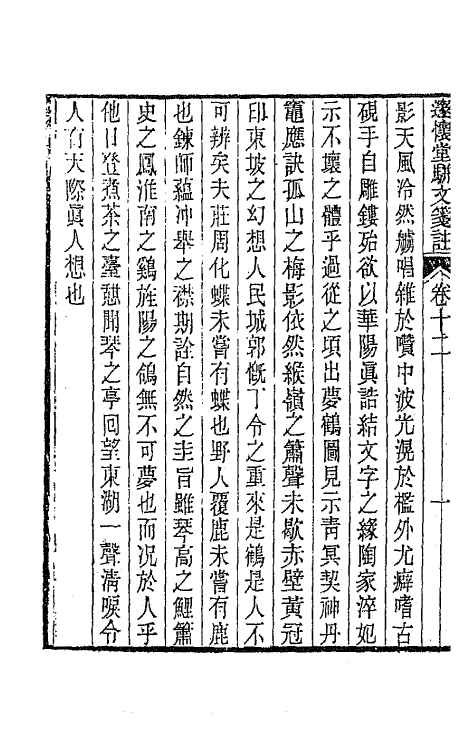 邃懷堂駢文箋註 卷十二 一
影天風冷然觴唱雜於囋中波光滉於檻外尤癖嗜古
硯手自雕鏤殆欲以華陽眞誥結文字之緣陶家淬妃
示不壞之體乎過從之頃出夢鶴圖見示靑冥契神丹
竈應訣孤山之梅影依然緱嶺之簫聲未歇赤壁黃冠
印東坡之幻想人民城郭慨丁令之重來是鶴是人不
可辨矣夫莊周化蝶未嘗有蝶也野人覆鹿未嘗有鹿
也鍊師蘊冲舉之襟期詮自然之圭旨雖琴高之鯉簫
史之鳳淮南之鷄旌陽之鴿無不可夢也而況於人乎
他日登煮茶之臺憇聞琴之亭回望東湖一聲淸唳令
人有天際眞人想也